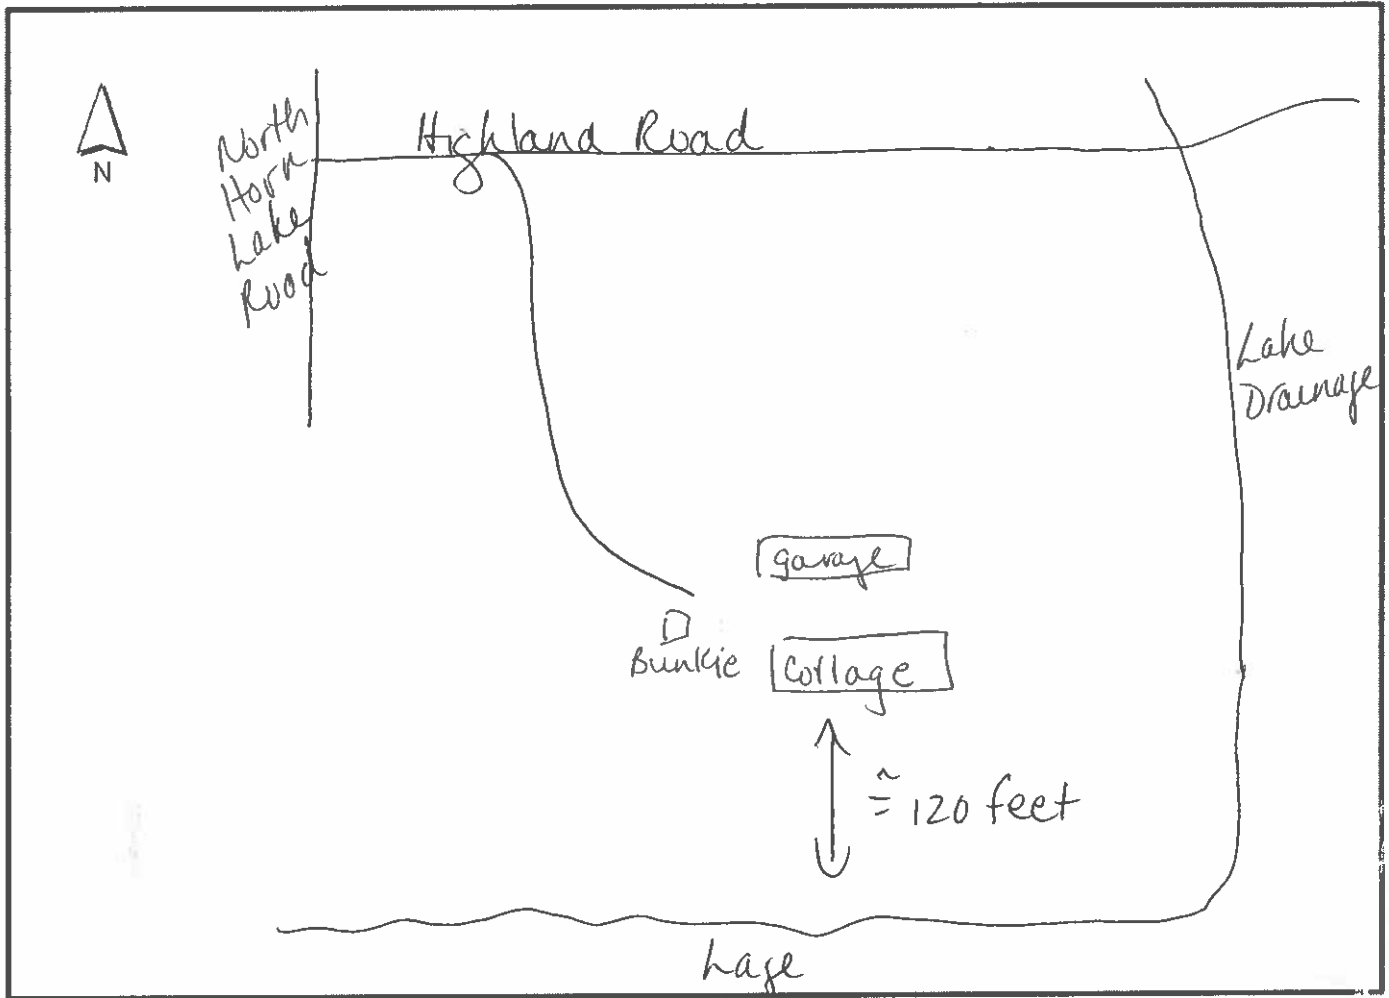 N
North
Horn
Lake
Road
Highland Road
Lake
Drainage
garage
Bunkie
Cottage
≅ 120 feet
Lake